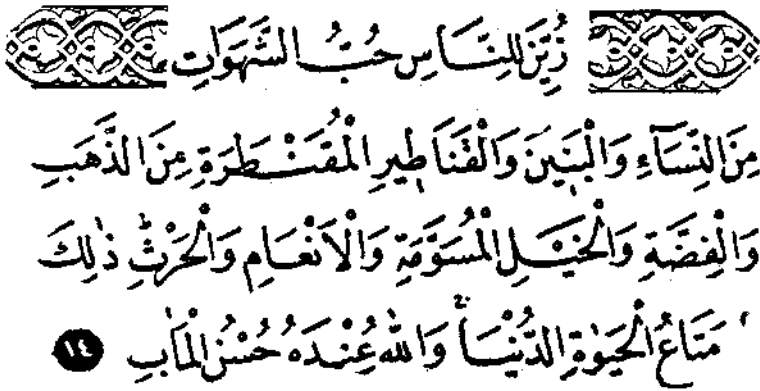 زُيِّنَ لِلنَّاسِ حُبُّ الشَّهَوَاتِ
مِنَ النِّسَآءِ وَالْبَنِينَ وَالْقَنَاطِيرِ الْمُقَنْطَرَةِ مِنَ الذَّهَبِ
وَالْفِضَّةِ وَالْخَيْلِ الْمُسَوَّمَةِ وَالْاَنْعَامِ وَالْحَرْثِ ذٰلِكَ
مَتَاعُ الْحَيٰوةِ الدُّنْيَا وَاللّٰهُ عِنْدَهُ حُسْنُ الْمَاٰبِ ١٤